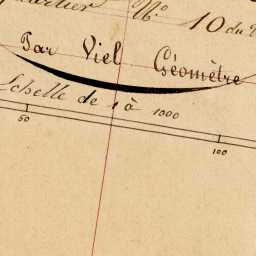 Quartier N.o 10 du
Par Viel Géomètre
Echelle de 1 à 1000
50 100